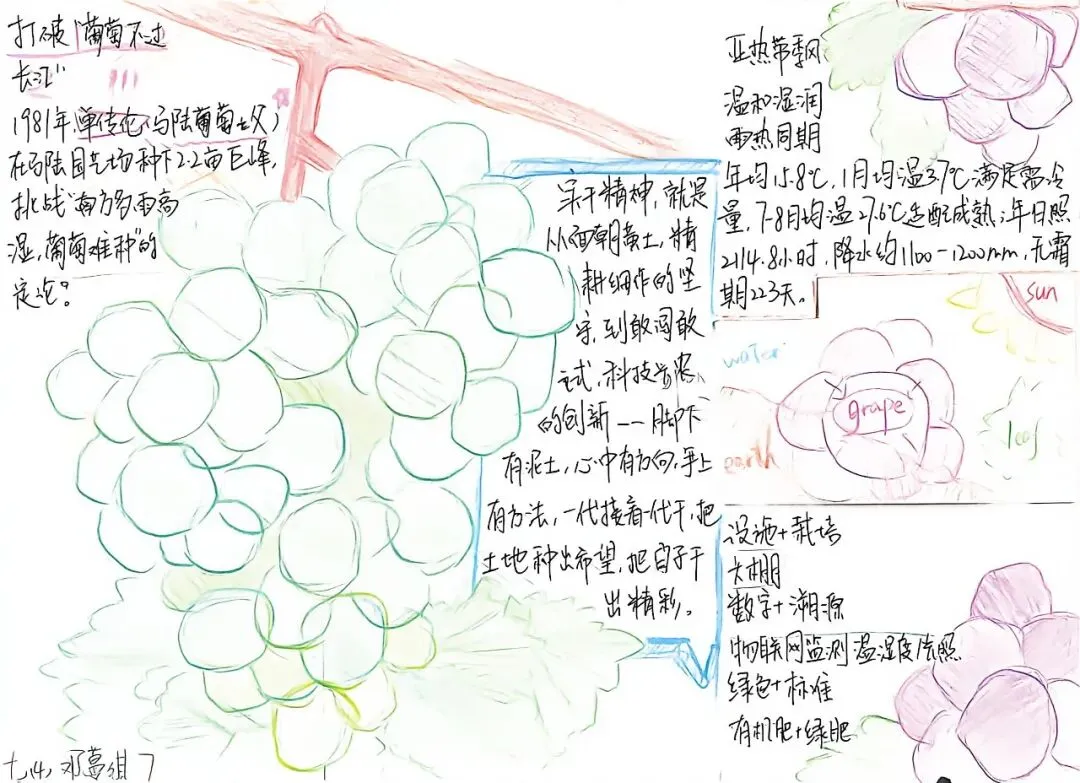 打破"葡萄不过
长江"
1981年,单传伦(马陆葡萄之父)
在马陆园艺场种下2.2亩巨峰,
挑战"南方多雨高
湿,葡萄难种"的
定论。
实干精神,就是
从面朝黄土,精
耕细作的坚
守,到敢闯敢
试,科技兴农
的创新——脚下
有泥土,心中有方向,手上
有方法,一代接着一代干,把
土地种出希望,把日子干
出精彩。
亚热带季风
温和湿润
雨热同期
年均15.8℃,1月均温3.7℃满足需冷
量,7-8月均温27.6℃适配成熟;年日照
2114.8小时,降水约1100-1200mm,无霜
期223天。
sun
water
grape
leaf
earth
设施+栽培
大棚
数字+溯源
物联网监测温湿度光照
绿色+标准
有机肥+绿肥